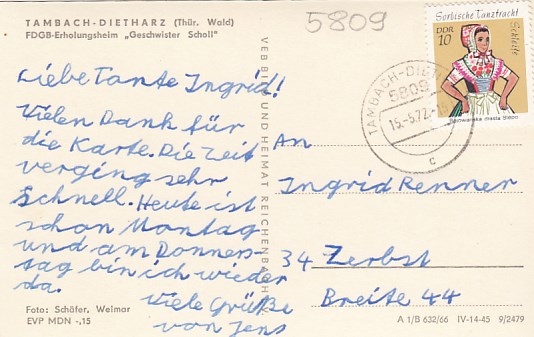 TAMBACH-DIETHARZ (Thür. Wald)
FDGB-Erholungsheim „Geschwister Scholl"
5809
Liebe Tante Ingrid!
Vielen Dank für
die Karte. Die Zeit
verging sehr
Schnell. Heute ist
schon Montag
und am Donners-
tag bin ich wieder
da.
Viele Grüße
von Jens
Foto: Schäfer, Weimar
EVP MDN -,15
VEB BILD UND HEIMAT REICHENBACH
Sorbische Tanztracht
Schleife
DDR
10
TAMBACH-DIETH
5809
15.-5.72-15
c
An
Ingrid Renner
34 Zerbst
Breite 44
A 1/B 632/66 IV-14-45 9/2479